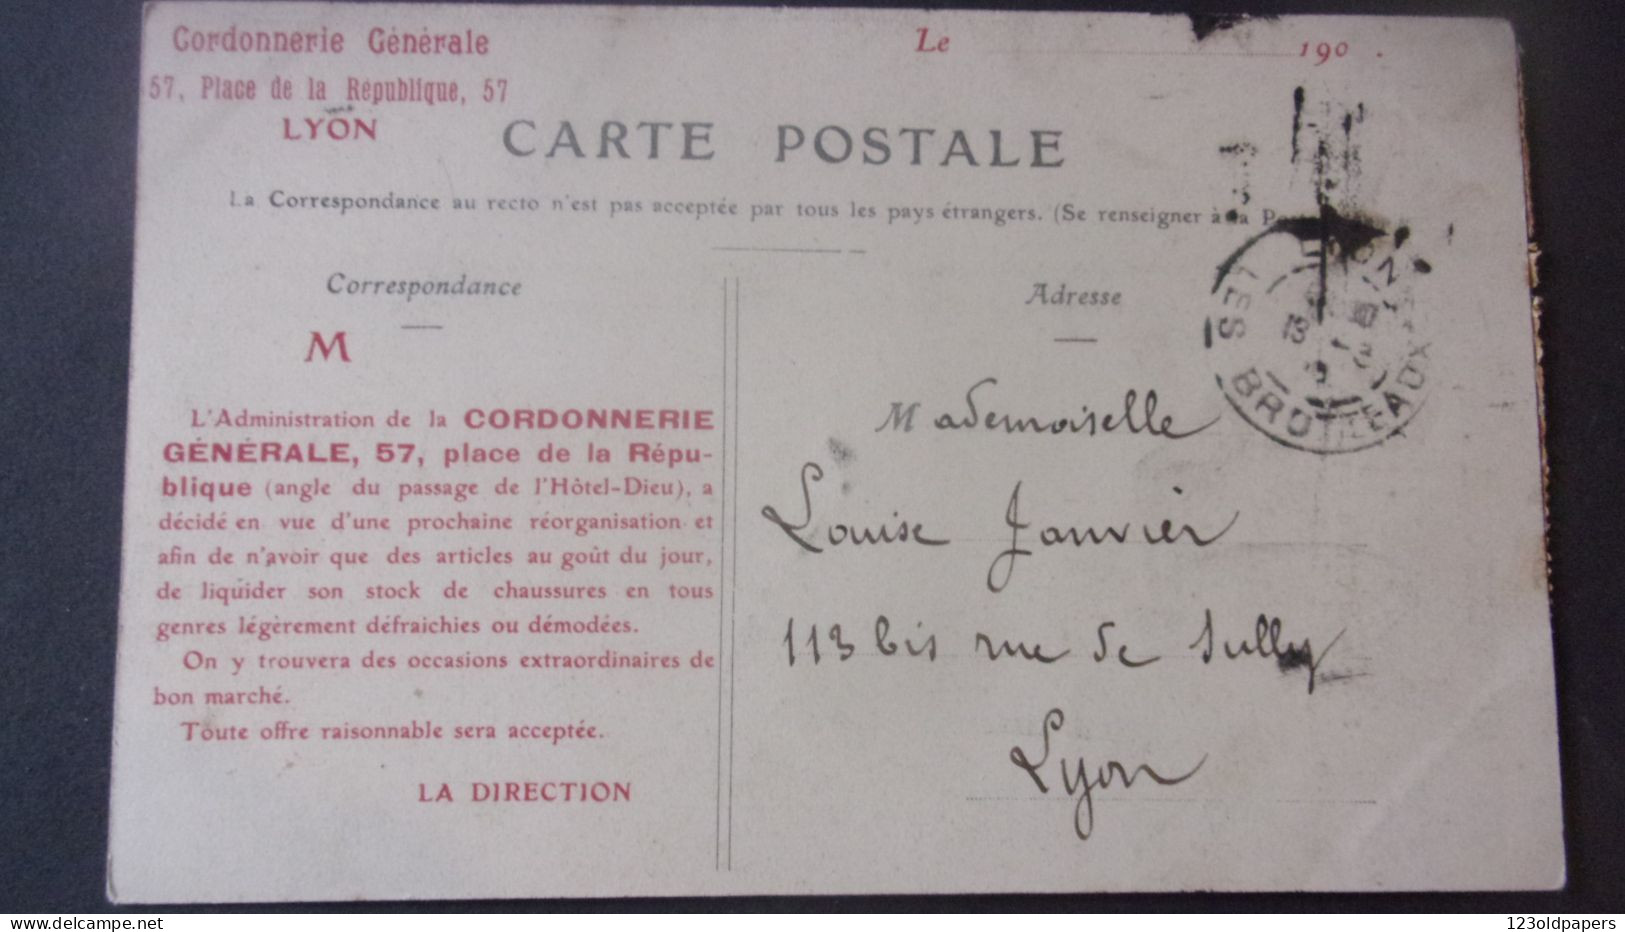 Cordonnerie Générale
57, Place de la République, 57
LYON
Le 190 .
CARTE POSTALE
La Correspondance au recto n'est pas acceptée par tous les pays étrangers. (Se renseigner à la
Correspondance
M
L'Administration de la CORDONNERIE
GÉNÉRALE, 57, place de la Répu-
blique (angle du passage de l'Hôtel-Dieu), a
décidé en vue d'une prochaine réorganisation et
afin de n'avoir que des articles au goût du jour,
de liquider son stock de chaussures en tous
genres légèrement défraichies ou démodées.
On y trouvera des occasions extraordinaires de
bon marché.
Toute offre raisonnable sera acceptée.
LA DIRECTION
Adresse
Mademoiselle
Louise Janvier
113 bis rue de Sully
Lyon
LES BROTTEAUX
13
123oldpapers